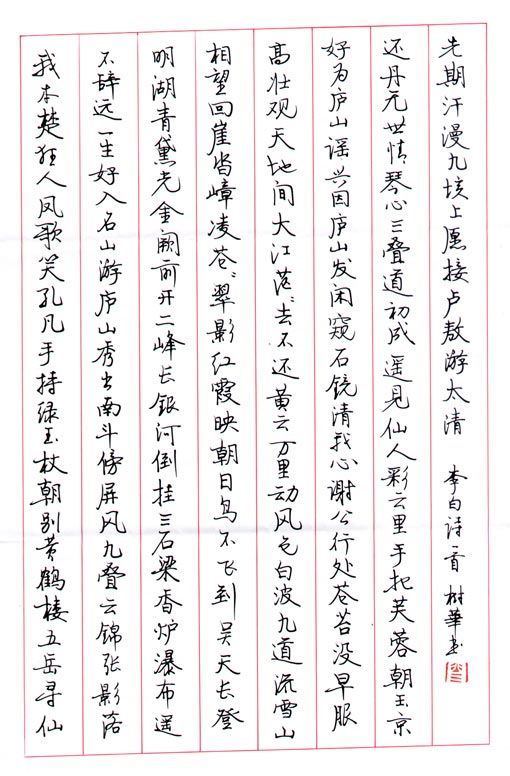 我本楚狂人凤歌笑孔凡手持绿玉杖朝别黄鹤楼五岳寻仙
不辞远一生好入名山游庐山秀出南斗傍屏风九叠云锦张影落
明湖青黛光金阙前开二峰长银河倒挂三石梁香炉瀑布遥
相望回崖沓嶂凌苍〻翠影红霞映朝日鸟不飞到吴天长登
高壮观天地间大江茫〻去不还黄云万里动风色白波九道流雪山
好为庐山谣兴因庐山发闲窥石镜清我心谢公行处苍苔没早服
还丹无世情琴心三叠道初成遥见仙人彩云里手把芙蓉朝玉京
先期汗漫九垓上愿接卢敖游太清 李白诗一首 树華书